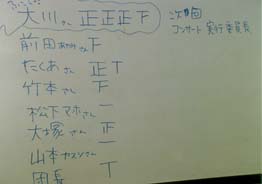 大川さん 正正正下
次回
コンサート実行委員長
前田あゆみさん 下
たくあさん 正丅
竹本さん 下
松下マホさん 一
大塚さん 正
山本ヤスシさん 一
団長 丅